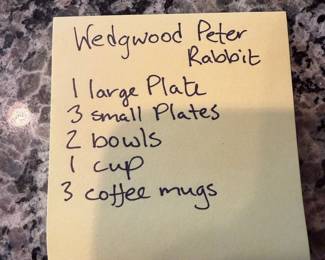 Wedgwood Peter
Rabbit
1 large Plate
3 small Plates
2 bowls
1 cup
3 coffee mugs